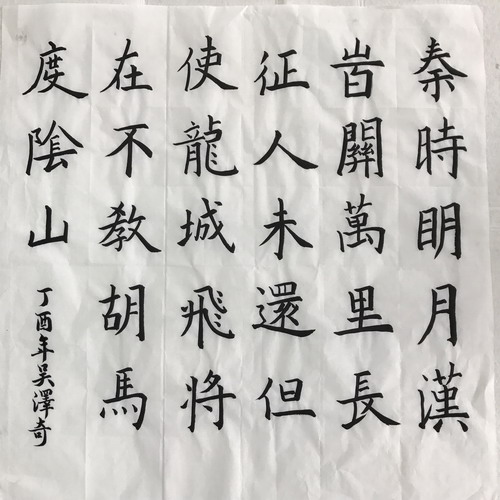 秦時明月漢
旹關萬里長
征人未還但
使龍城飛將
在不教胡馬
度陰山
丁酉年吳澤奇